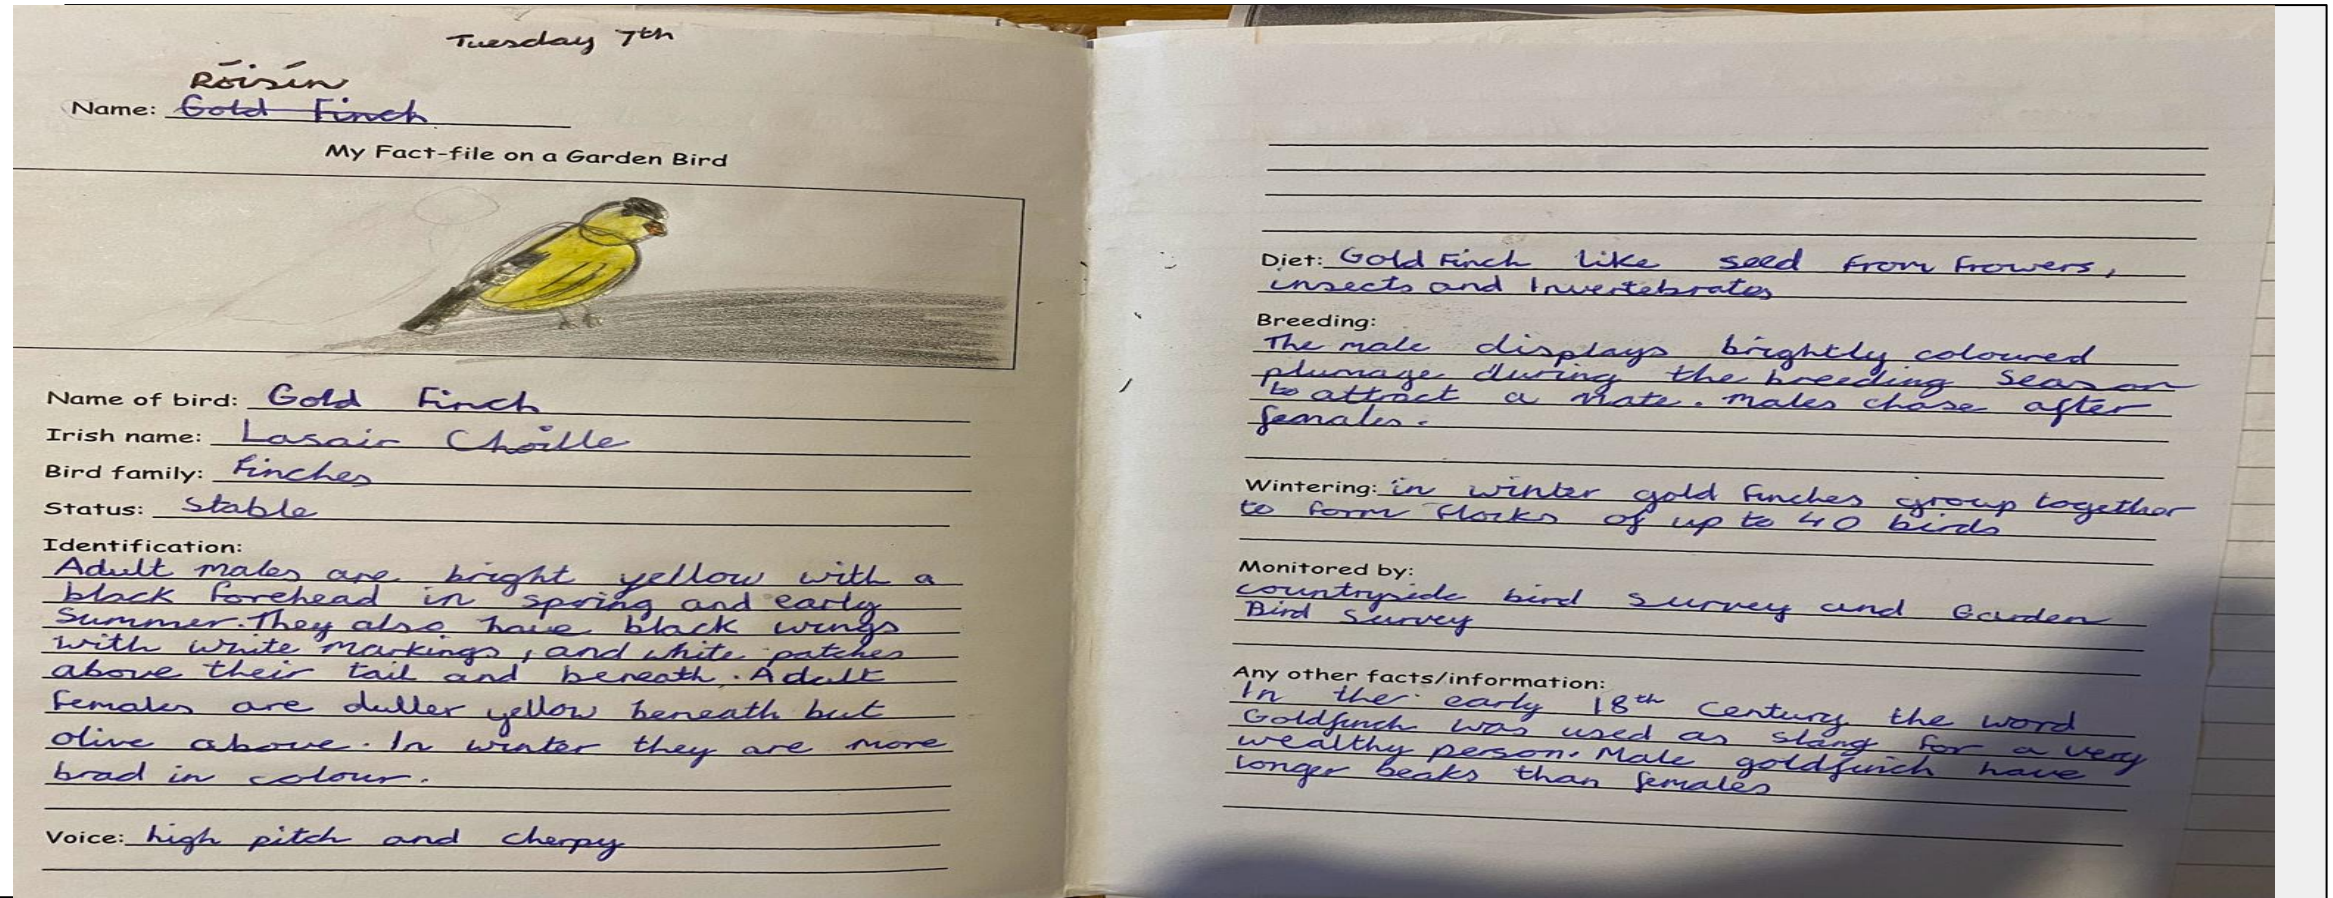 Tuesday 7th
Róisín
Name: Gold Finch
My Fact-file on a Garden Bird
Name of bird: Gold Finch
Irish name: Lasair Choille
Bird family: Finches
Status: Stable
Identification:
Adult males are bright yellow with a
black forehead in spring and early
Summer. They also have black wings
with white markings, and white patches
above their tail and beneath. Adult
Females are duller yellow beneath but
olive above. In winter they are more
brad in colour.
Voice: high pitch and cherpy
Diet: Gold Finch like seed from frowers,
insects and Invertebrates
Breeding:
The male displays brightly coloured
plumage during the breeding season
to attract a mate. Males chase after
females.
Wintering: in winter gold finches group together
to form flocks of up to 40 birds
Monitored by:
countryside bird survey and Garden
Bird Survey
Any other facts/information:
In the early 18th Century the word
Goldfinch was used as slang for a very
wealthy person. Male goldfinch have
longer beaks than females